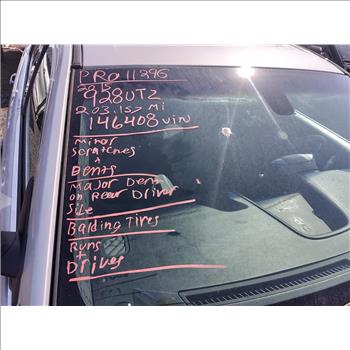 PRO11296
2015
928UTZ
203,157 Mi
146408 VIN
Minor
Scratches
+
Dents
Major Dent
on Rear Driver
Side
Balding Tires
Runs
+
Drives